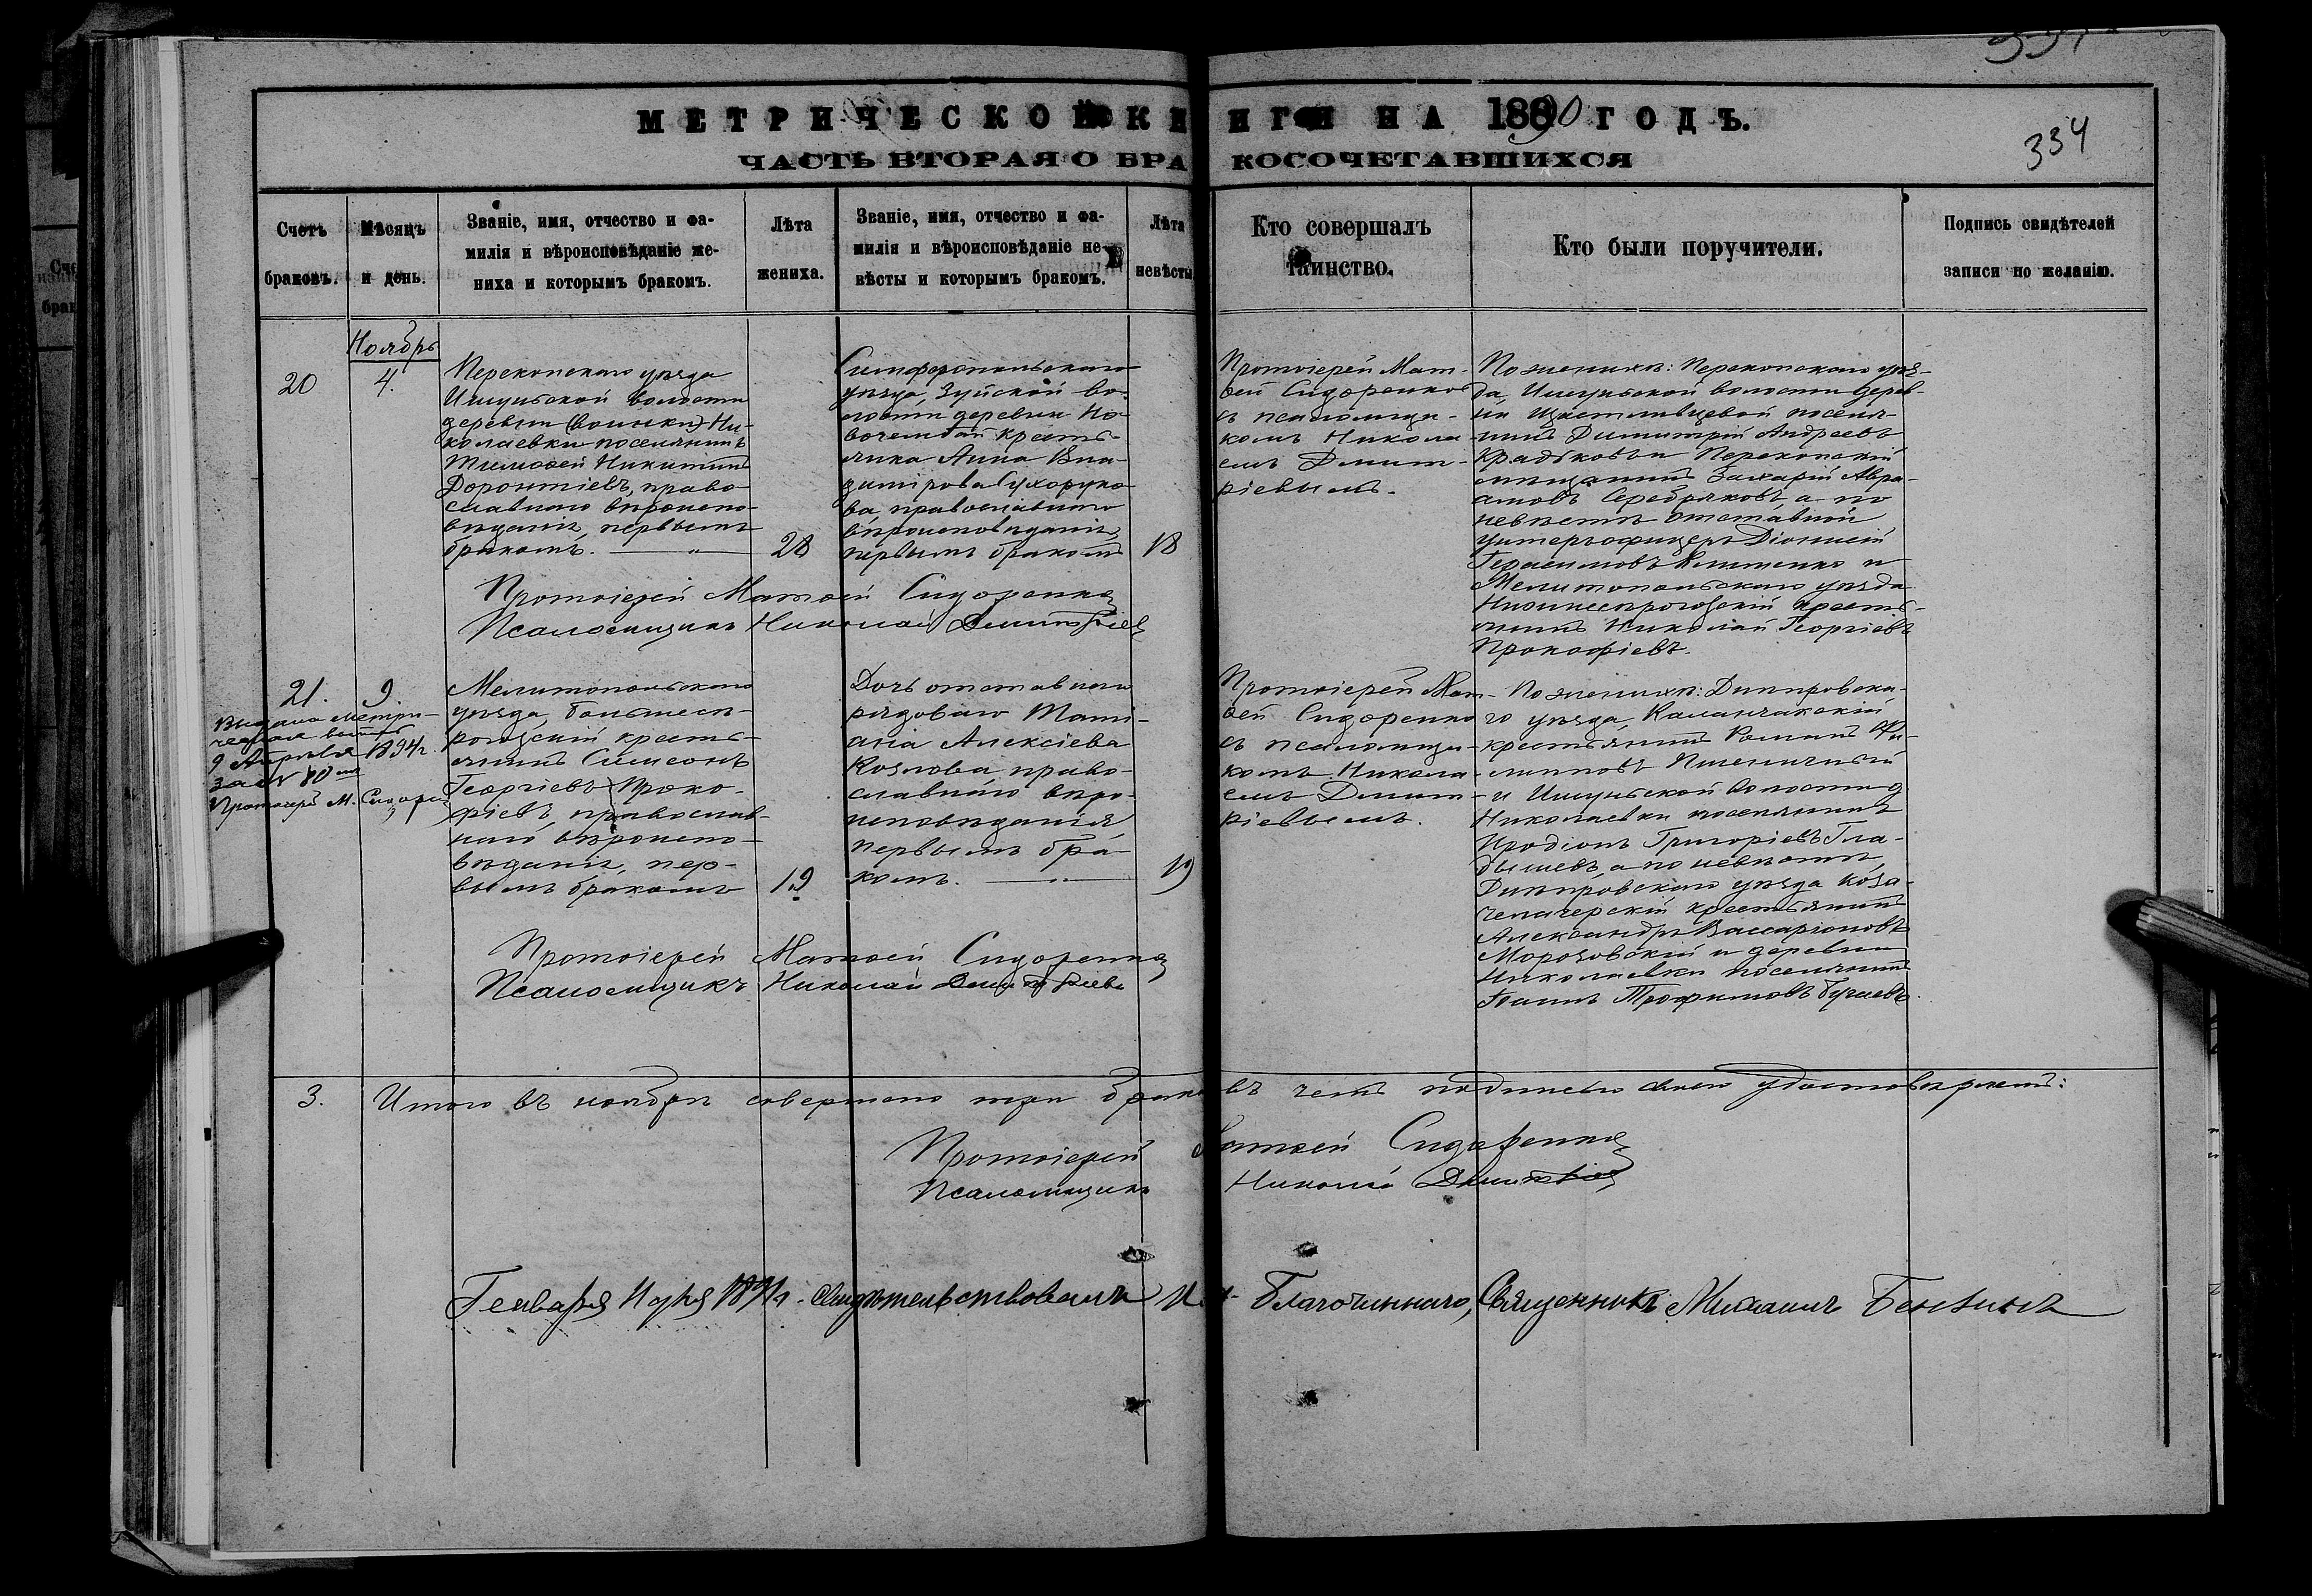 334
МЕТРИЧЕСКОЙ КНИГИ НА 1890 ГОДЪ.
ЧАСТЬ ВТОРАЯ О БРАКОСОЧЕТАВШИХСЯ
Счетъ
браковъ.
Мѣсяцъ
и день.
Званіе, имя, отчество и фа-
милія и вѣроисповѣданіе же-
ниха и которымъ бракомъ.
Лѣта
жениха.
Званіе, имя, отчество и фа-
милія и вѣроисповѣданіе не-
вѣсты и которымъ бракомъ.
Лѣта
невѣсты
Кто совершалъ
таинство.
Кто были поручители.
Подпись свидѣтелей
записи по желанію.
20
Ноябрь
4.
Перекопскаго уѣзда
Ишуньской волости
деревни (воинки) Ни-
колаевки поселянинъ
Тимофей Никитинъ
Доронтіевъ, право-
славнаго вѣроиспо-
вѣданія, первымъ
бракомъ.
28
Симферопольскаго
уѣзда, Зуйской во-
лости деревни Но-
вочембай кресть-
янка Анна Вла-
димірова Сухоруко-
ва православнаго
вѣроисповѣданія,
первымъ бракомъ
18
Протоіерей Мат-
ѳей Сидоренко
съ псаломщи-
комъ Никола-
емъ Димит-
ріевымъ.
По женихѣ: Перекопскаго уѣз-
да, Ишуньской волости дерев-
ни Щастливцевой поселя-
нинъ Димитрій Андреевъ
и Перекопскій
мѣщанинъ Захарій Авра-
амовъ Серебряковъ, а по
невѣстѣ отставной
унтеръ-офицеръ Діонисій
Герасимовъ и
Мелитопольскаго уѣзда
Нижнесѣрогозскій кресть-
янинъ Николай Георгіевъ
Прокофіевъ.
Протоіерей Матѳей Сидоренко
Псаломщикъ Николай Димитріевъ
21.
9.
Выдана метри-
ческая
9 Апрѣля 1894 г.
за № 80
Протоіерей М. Сидоренко
Мелитопольскаго
уѣзда, Большесѣ-
рогозскій кресть-
янинъ Симеонъ
Георгіевъ Проко-
фіевъ, православ-
наго вѣроиспо-
вѣданія, пер-
вымъ бракомъ
19
Дочь отставнаго
рядоваго Тати-
ана Алексіева
Козлова право-
славнаго вѣро-
исповѣданія,
первымъ бра-
комъ.
19
Протоіерей Мат-
ѳей Сидоренко
съ псаломщи-
комъ Никола-
емъ Димит-
ріевымъ.
По женихѣ: Днѣпровска-
го уѣзда, Каланчакскій
крестьянинъ Романъ Фи-
липповъ Пшеничный
и Ишуньской волости д.
Николаевки поселянинъ
Иродіонъ Григоріевъ Гла-
дышевъ, а по невѣстѣ,
Днѣпровскаго уѣзда Коза-
челагерскій крестьянинъ
Александръ Виссаріоновъ
Морозовскій и деревни
Николаевки поселянинъ
Трофимовъ
Протоіерей Матѳей Сидоренко
Псаломщикъ Николай Димитріевъ
3. Итого въ ноябрѣ совершено три брака въ чемъ подписью своею удостовѣряемъ:
Протоіерей Матѳей Сидоренко
Псаломщикъ Николай Димитріевъ
Генваря 1891 г. Свидѣтельствовалъ И. д. Благочиннаго, Священникъ Михаилъ